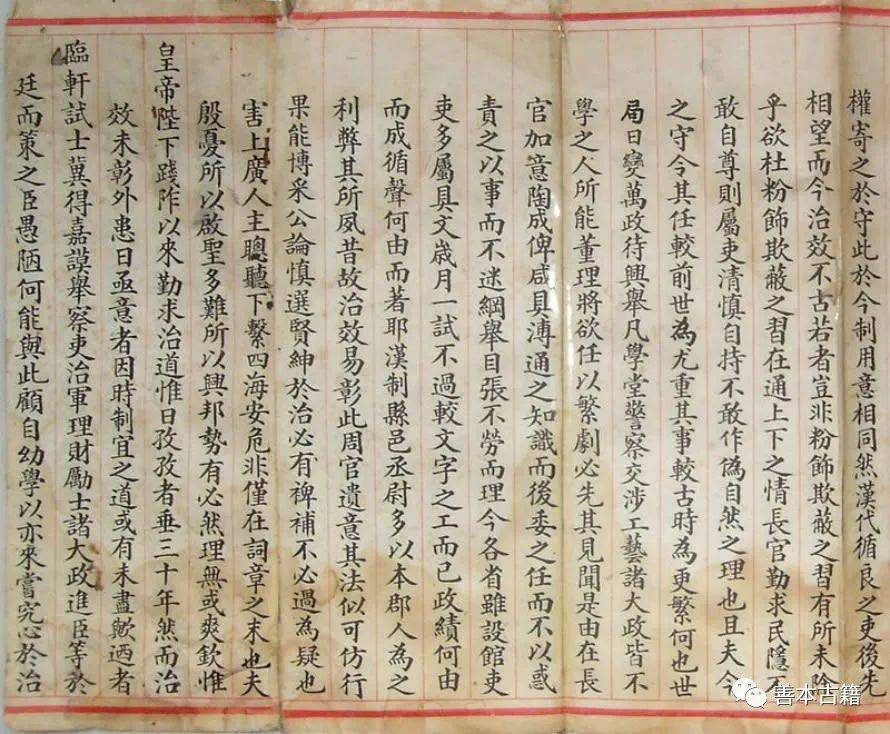 權寄之於守此於今制用意相同然漢代循良之吏後先
相望而今治效不古若者豈非粉飾欺蔽之習有所未除
乎欲杜粉飾欺蔽之習在通上下之情長官勤求民隱不
敢自尊則屬吏清慎自持不敢作偽自然之理也且夫今
之守令其任較前世為尤重其事較古時為更繁何也世
局日變萬政待興舉凡學堂警察交涉工藝諸大政皆不
學之人所能董理將欲任以繁劇必先其見聞是由在長
官加意陶成俾咸具溥通之知識而後委之任而不以惑
責之以事而不迷綱舉目張不勞而理今各省雖設館吏
吏多屬具文歲月一試不過較文字之工而已政績何由
而成循聲何由而著耶漢制縣邑丞尉多以本郡人為之
利弊其所夙昔故治效易彰此周官遺意其法似可仿行
果能博采公論慎選賢紳於治必有裨補不必過為疑也
害上廣人主聰聽下繫四海安危非僅在詞章之末也夫
殷憂所以啟聖多難所以興邦勢有必然理無或爽欽惟
皇帝陛下踐阼以來勤求治道惟日孜孜者垂三十年然而治
效未彰外患日亟意者因時制宜之道或有未盡歟迺者
臨軒試士冀得嘉謨舉察吏治軍理財勵士諸大政進臣等於
廷而策之臣愚陋何能與此顧自幼學以亦來嘗究心於治
善本古籍